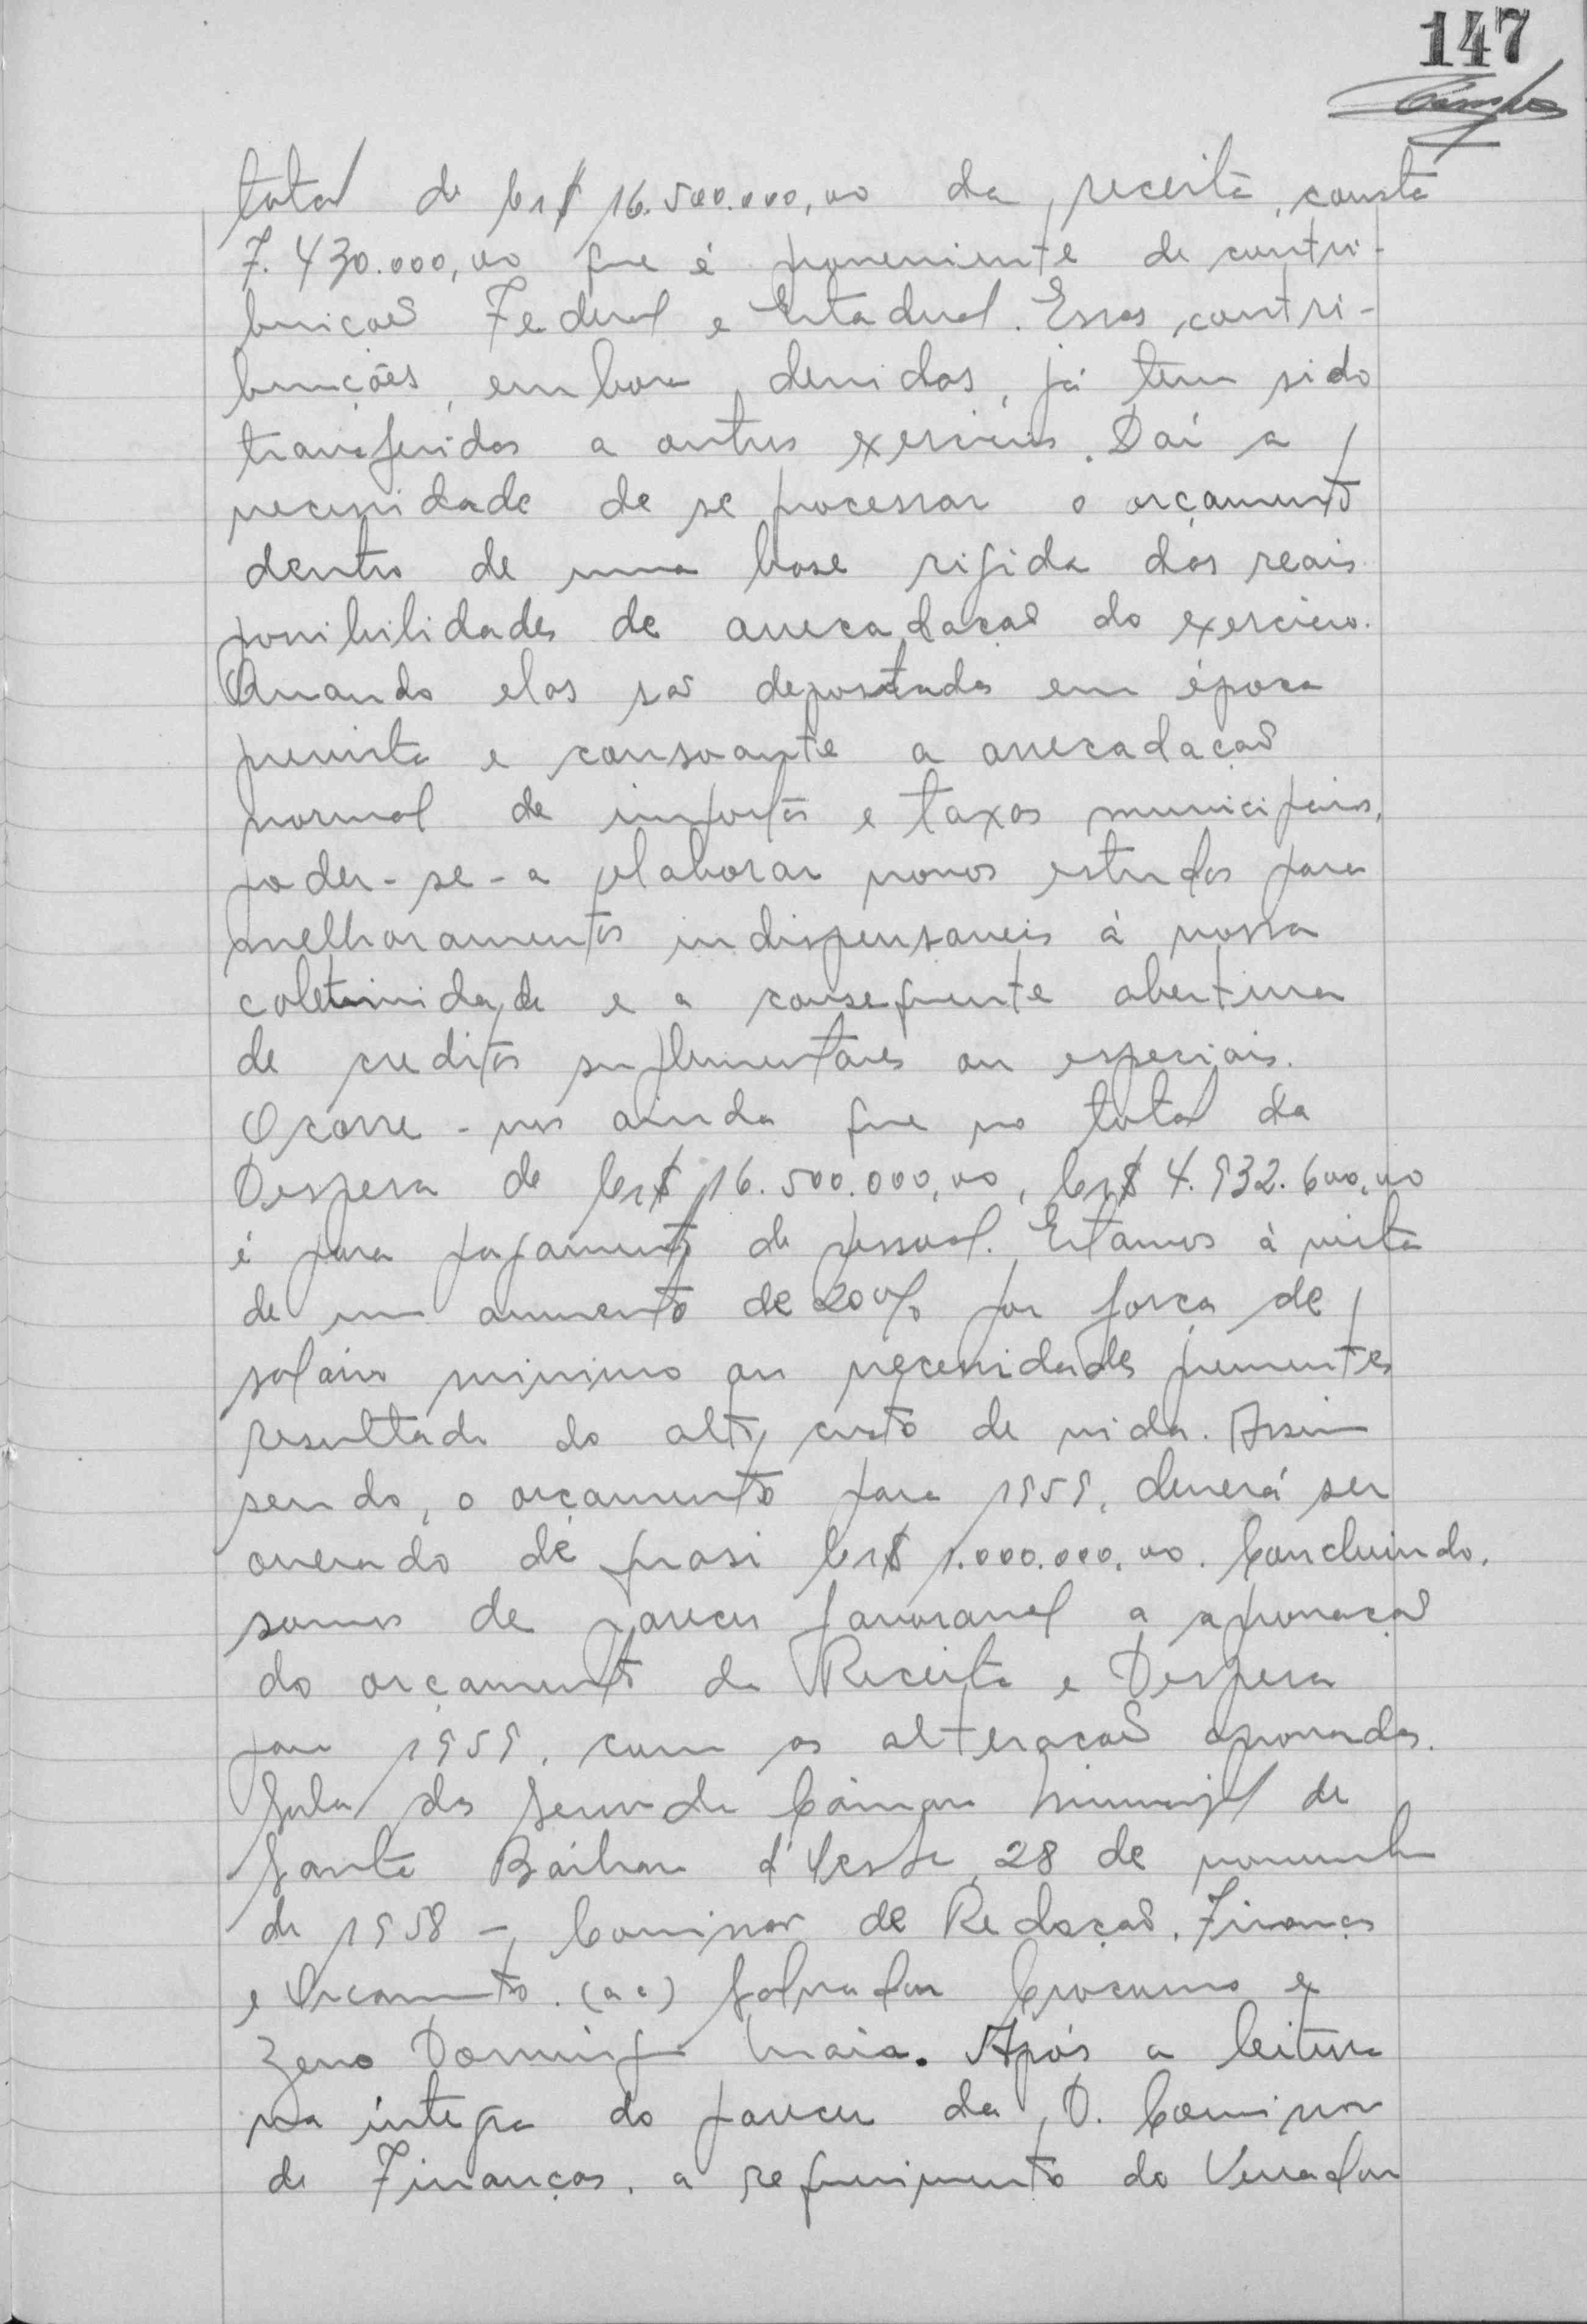 147
Campos
total de Cr$ 16.500.000,00 da receita, consta
7.430.000,00 que é proveniente de contri-
buicoẽs Federal e Estadual. Essas contri-
buições, embora devidas, já tem sido
transferidas a outros exercicios. Daí a
necessidade de se processar o orçamento
dentro de uma base rigida das reais
possibilidades de arrecadaçaõ do exercicio.
Quando elas saõ depositadas em época
prevista e consoante a arrecadaçaõ
normal de impostos e taxas municipais,
poder-se-a elaborar novos estudos para
melhoramentos indispensaveis á nossa
coletividade e a consequente abertura
de creditos suplementares ou especiais.
Ocorre-nos ainda que no total da
Despesa de Cr$ 16.500.000,00, Cr$ 4.932.600,00
é para pagamento de pessoal. Estamos á vista
de um aumento de 20% por força de
salário minimo ou necessidades prementes
resultado do alto custo de vida. Assim
sendo, o orçamento para 1959, deverá ser
onerado de quasi Cr$ 1.000.000,00. Concluindo,
somos de parecer favoravel a aprovaçaõ
do orçamento da Receita e Despesa
para 1959, com as alteraçoẽs aprovadas.
Sala das Sessoẽs da Câmara Municipal de
Santa Bárbara d'Oeste, 28 de novembro
de 1958 - Comissaõ de Redaçaõ, Finanças
e Orcamento. (aa) Salvador Crocomo e
Zeno Domingos Maia. Após a leitura
na íntegra do parecer da D. Comissaõ
de Finanças, a requerimento do Vereador